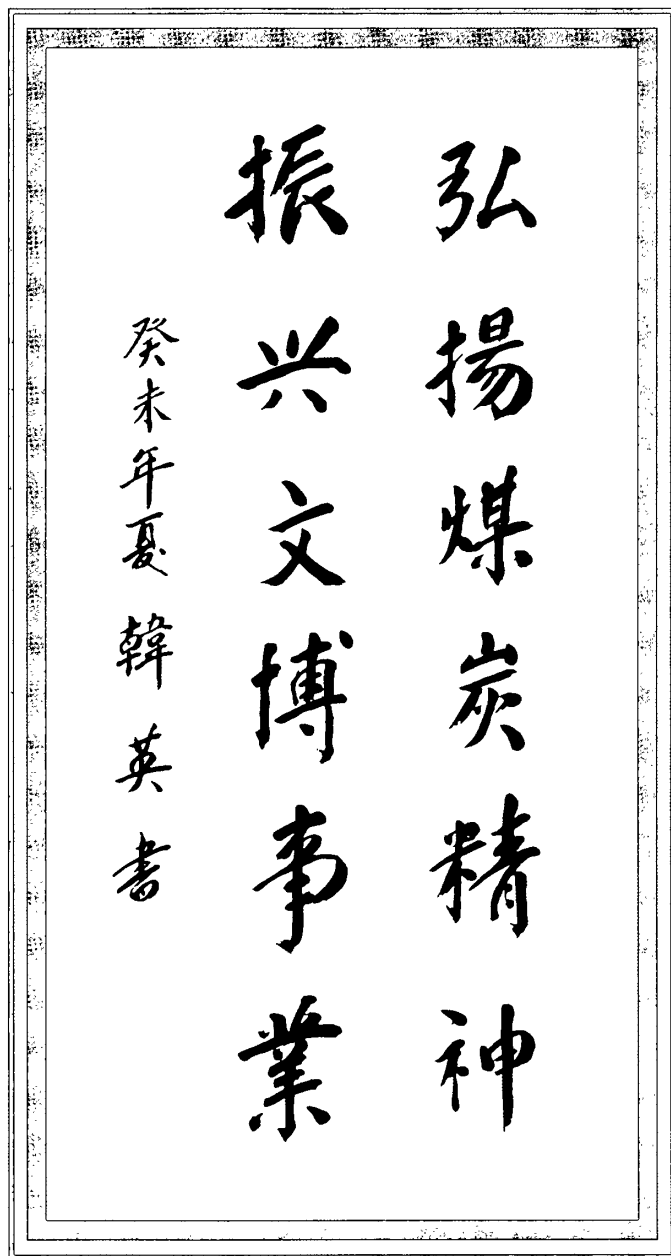 弘揚煤炭精神
振兴文博事業
癸未年夏 韓英書